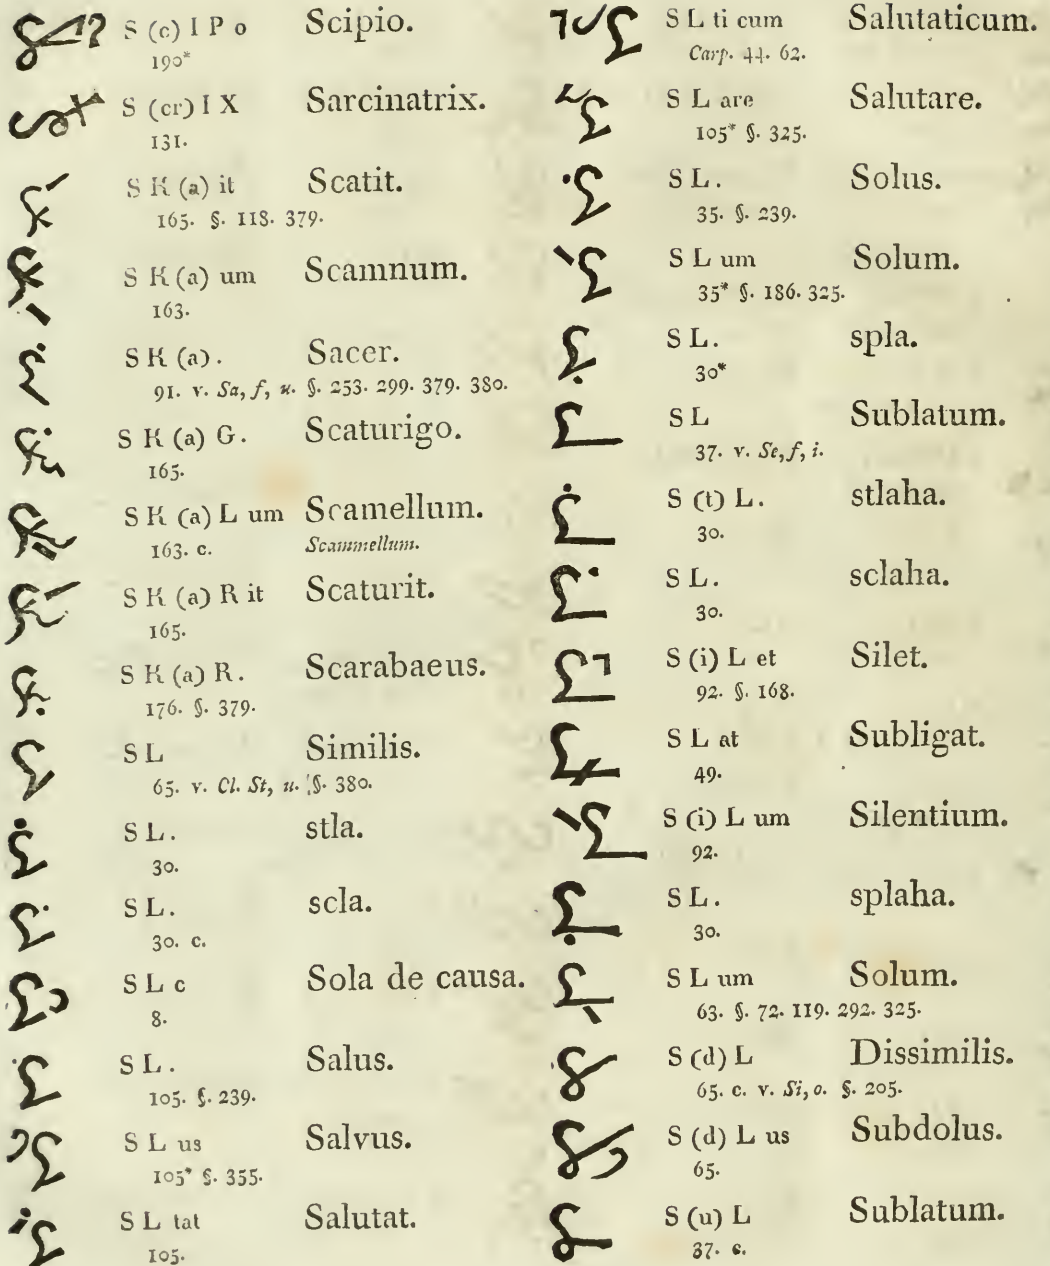 S (c) I P o Scipio.
190*
S (cr) I X Sarcinatrix.
131.
S K (a) it Scatit.
165. §. 118. 379.
S K (a) um Scamnum.
163.
S K (a). Sacer.
91. v. Sa, f, u. §. 253. 299. 379. 380.
S K (a) G. Scaturigo.
165.
S K (a) L um Scamellum.
163. c. Scammellum.
S K (a) R it Scaturit.
165.
S K (a) R. Scarabaeus.
176. §. 379.
S L Similis.
65. v. Cl. St, u. §. 380.
S L. stla.
30.
S L. scla.
30. c.
S L c Sola de causa.
8.
S L. Salus.
105. §. 239.
S L us Salvus.
105* §. 355.
S L tat Salutat.
105.
S L ti cum Salutaticum.
Carp. 44. 62.
S L are Salutare.
105* §. 325.
S L. Solus.
35. §. 239.
S L um Solum.
35* §. 186. 325.
S L. spla.
30*
S L Sublatum.
37. v. Se, f, i.
S (t) L. stlaha.
30.
S L. sclaha.
30.
S (i) L et Silet.
92. §. 168.
S L at Subligat.
49.
S (i) L um Silentium.
92.
S L. splaha.
30.
S L um Solum.
63. §. 72. 119. 292. 325.
S (d) L Dissimilis.
65. c. v. Si, o. §. 205.
S (d) L us Subdolus.
65.
S (u) L Sublatum.
37. c.